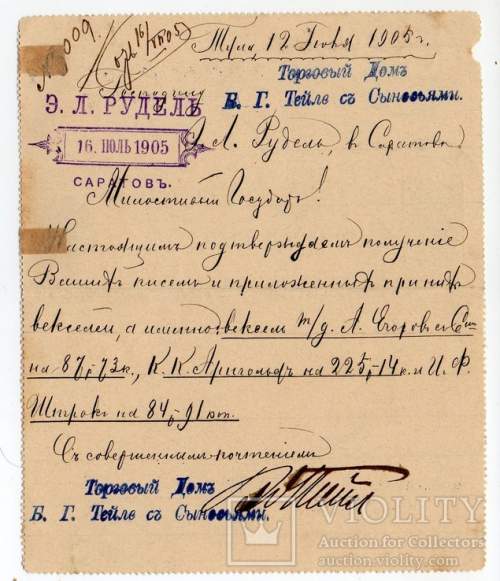 № 009.
16/VII 05
Тула, 12 Июля 1905 г.
Торговый Домъ
Б. Г. Тейле съ Сыновьями.
Господину
Э. Л. РУДЕЛЬ
16. ІЮЛЬ 1905
САРАТОВЪ.
Э. Л. Рудель, въ Саратовѣ
Милостивый Государь!
Настоящимъ подтверждаемъ полученіе
Вашихъ писемъ и приложенныхъ при нихъ
векселей, а именно: вексель т/д. А. Егоровъ съ
на 87,-73 к., К. К. Аригольдъ на 225,-14 к. и И. Ф.
Штрокъ на 84,-91 коп.
Съ совершеннымъ почтеніемъ
Торговый Домъ
Б. Г. Тейле съ Сыновьями.
Тейле
VIOLITY
Auction for Collectors
auction.violity.com